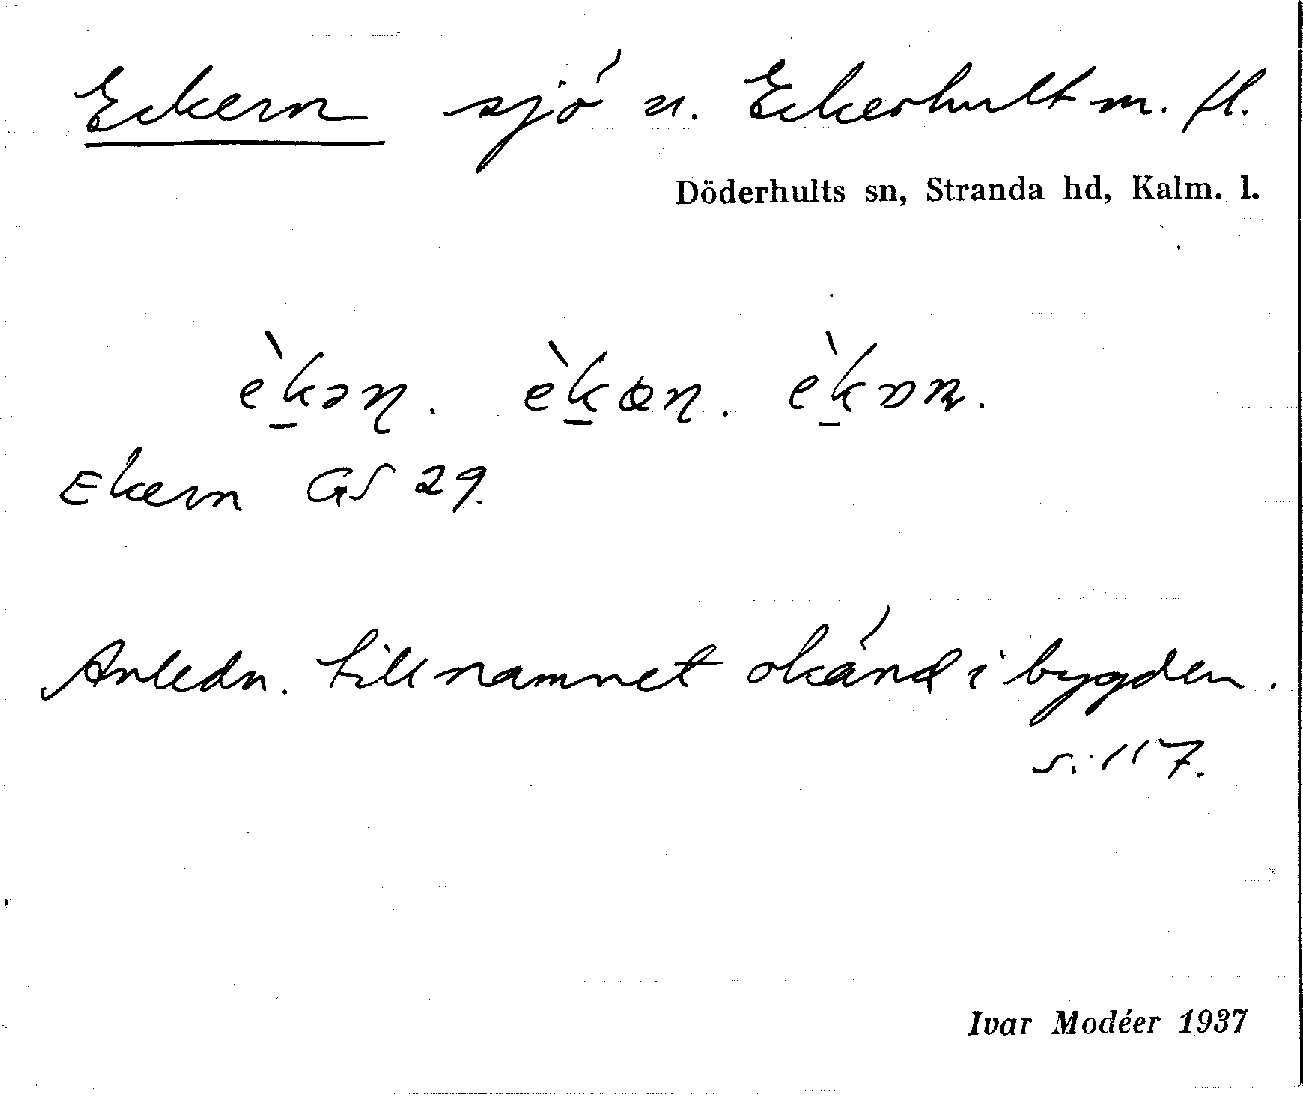 Eckern sjö u. Eckerhult m. fl.
Döderhults sn, Stranda hd, Kalm. l.
èk̲əɳ. èk̲ɵɳ. èk̲ɒɳ.
Ekern GS 29.
Anledn. till namnet okänd i bygden.
s. 117.
Ivar Modéer 1937